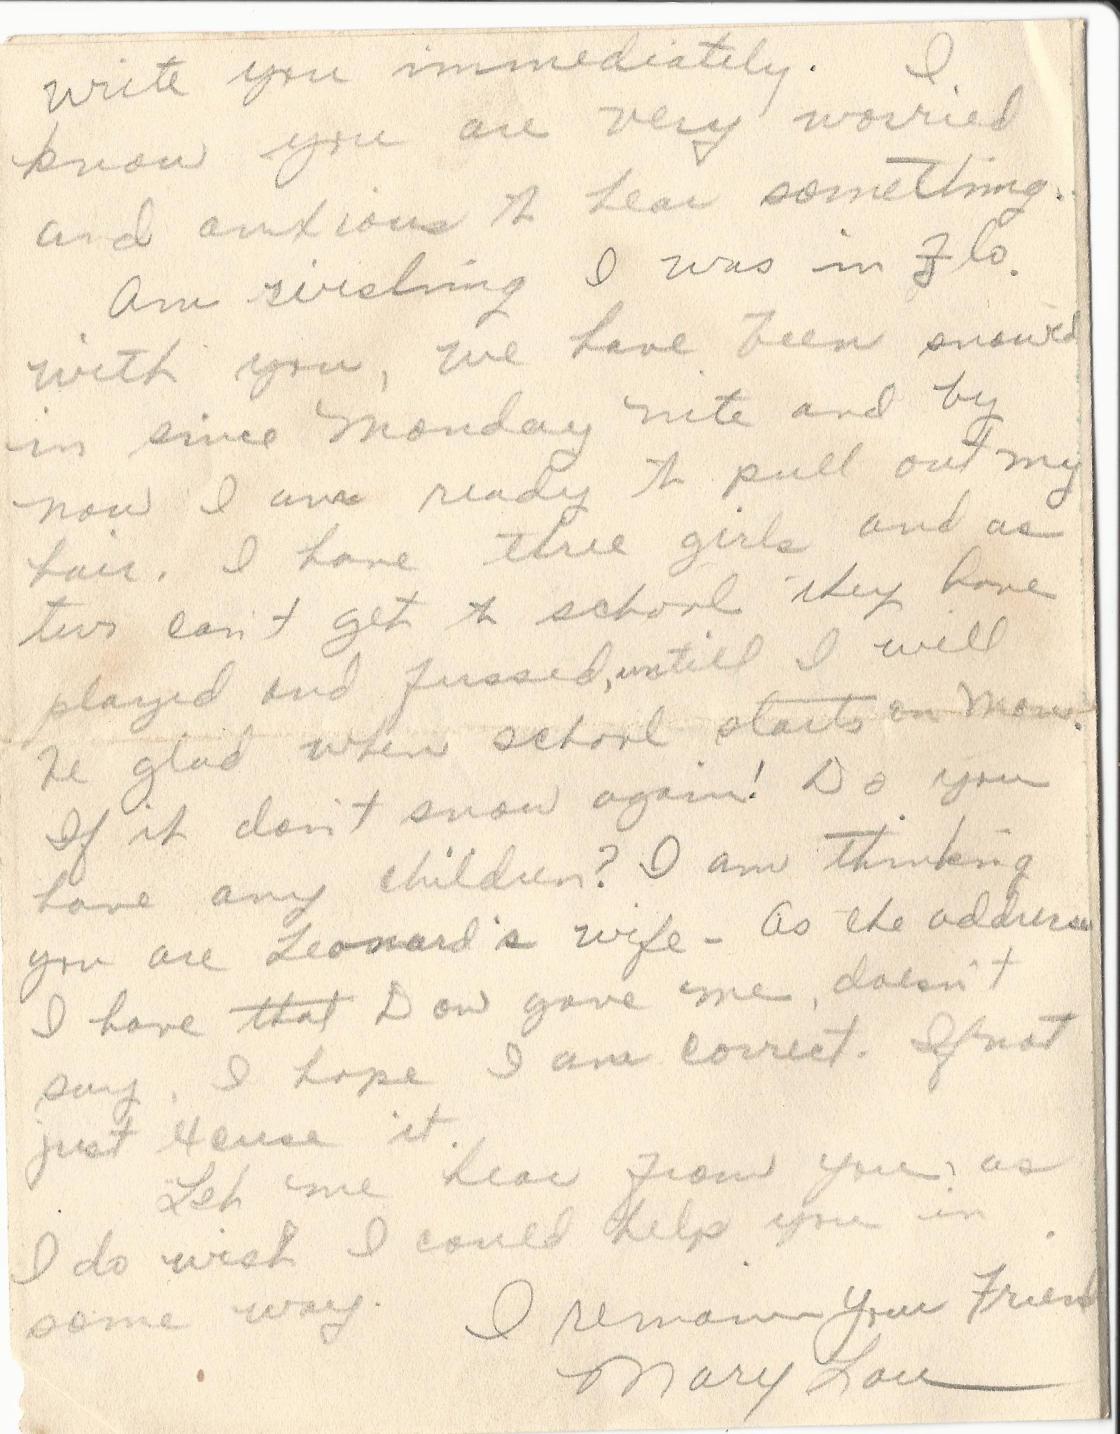 write you immediately. I
know you are very worried
and anxious to hear something.
Am wishing I was in Flo.
with you, we have been snow'd
in since Monday nite and by
now I am ready to pull out my
hair. I have three girls and as
two can't get to school they have
played and fussed, untill I will
be glad when school starts on Mon.
If it don't snow again! Do you
have any children? I am thinking
you are Leonard's wife - As the address
I have that Dow gave me, doesn't
say, I hope I am correct. If not
just excuse it.
Let me hear from you, as
I do wish I could help you in
some way.
I remain your Friend
Mary Lou